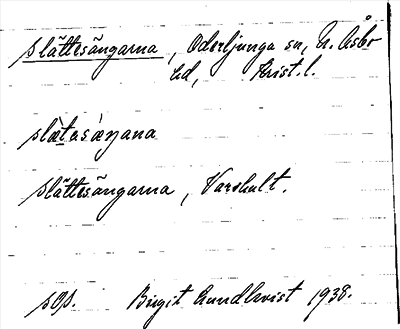 Slättesängarna, Oderljunga sn, N. Åsbo
hd, Krist. l.
slætasæŋana
Slättesängarna, Varshult.
Birgit Lundkvist 1938.